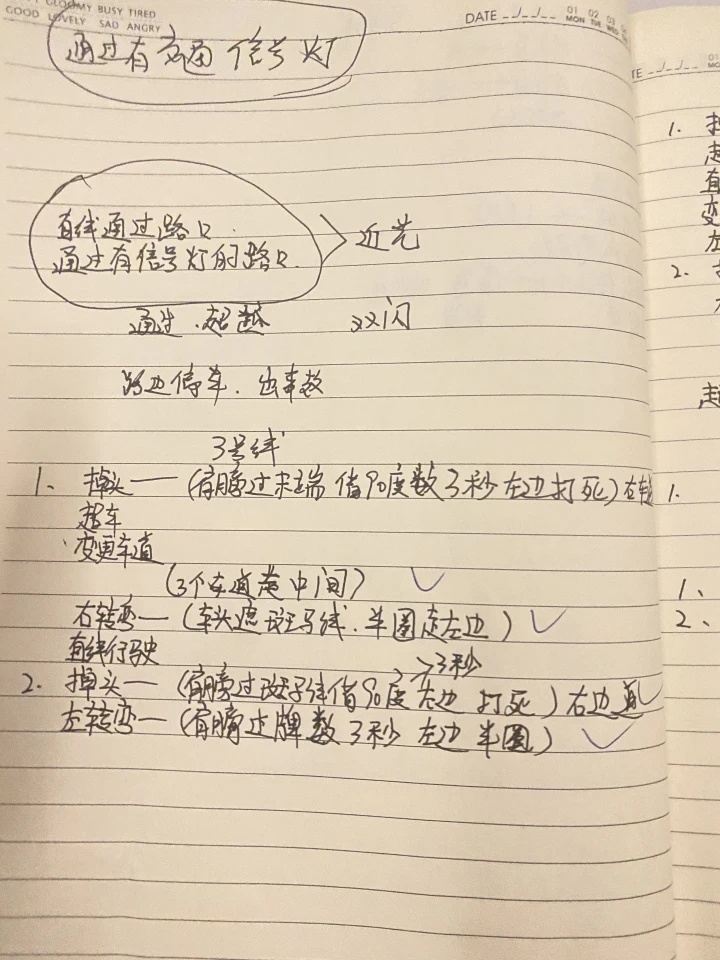 GLOOMY BUSY TIRED
GOOD LOVELY SAD ANGRY
DATE
01 02 03
MON TUE WED
通过有交通信号灯
直线通过路口.
通过有信号灯的路口.
近光
通过.超越 双闪
路边停车.出事故
3号线
1. 掉头——(肩膀过末端借90度数3秒左边打死)右转
超车
变更车道
(3个车道走中间)
右转弯——(车头遮斑马线.半圈走左边)
直线行驶
≥3秒
2. 掉头——(肩膀过斑马线借90度左边打死)右边道
左转弯——(肩膀过牌数3秒左边半圈)
1.
起
直
变
左
2.
起
1.
1、
2、